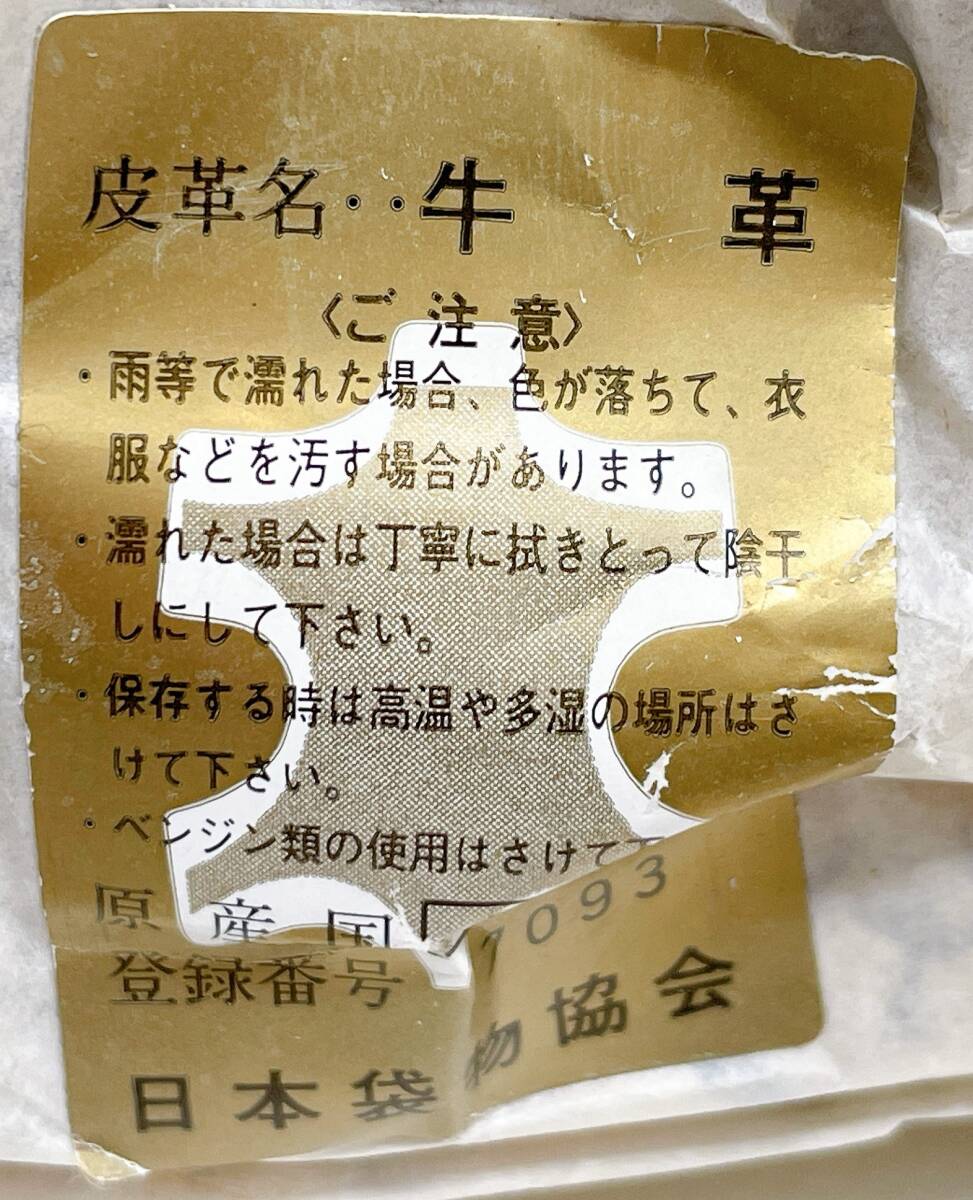 皮革名・・牛 革
〈ご注意〉
・雨等で濡れた場合、色が落ちて、衣
服などを汚す場合があります。
・濡れた場合は丁寧に拭きとって陰干
しにして下さい。
・保存する時は高温や多湿の場所はさ
けて下さい。
・ベンジン類の使用はさけて
原産国
登録番号 7093
日本袋物協会